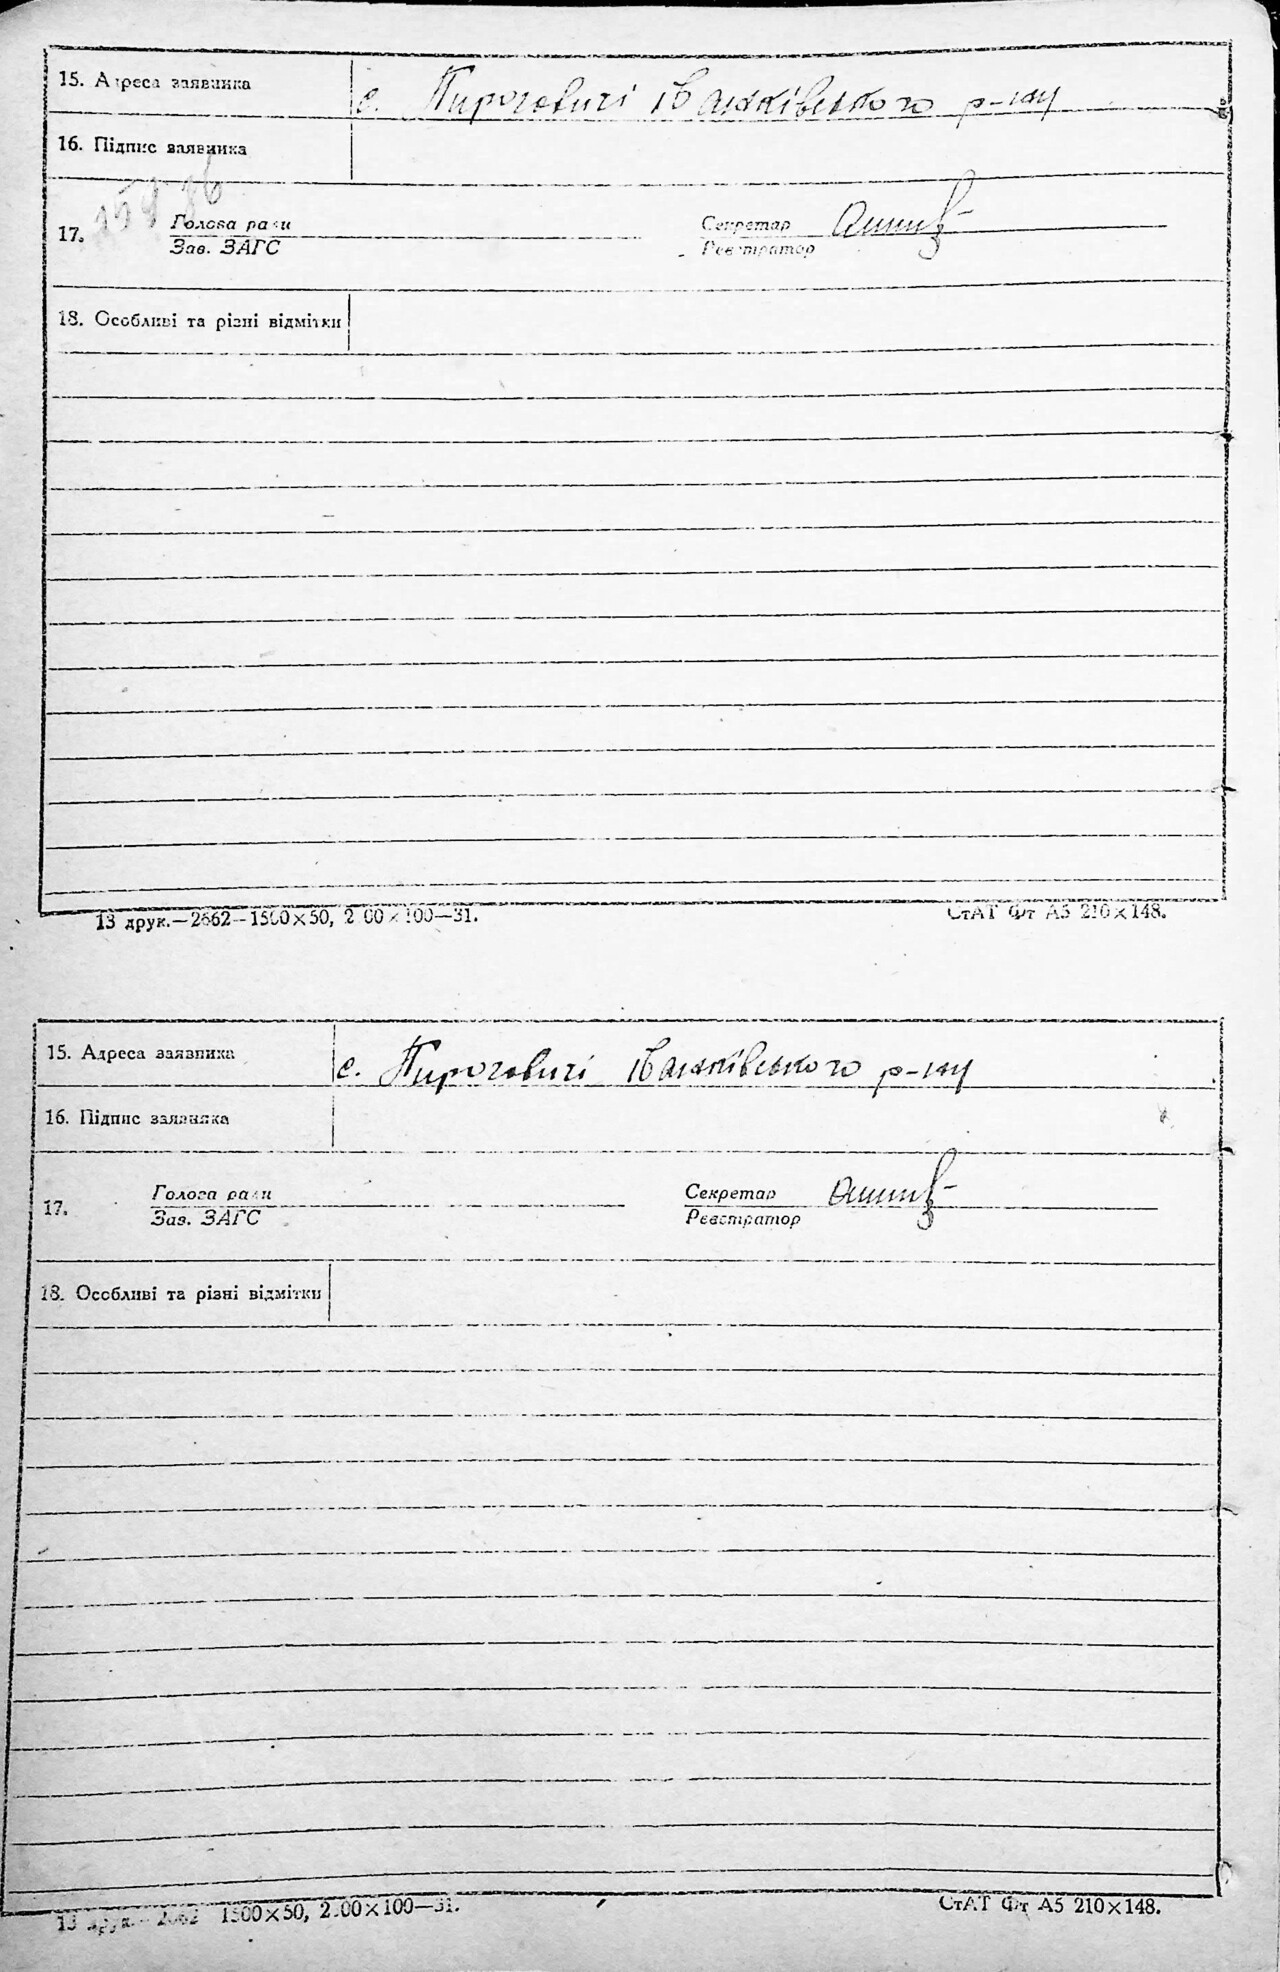 15. Адреса заявника с. Пироговичі Іванківського р-ну
16. Підпис заявника
17. Голова ради Секретар
Зав. ЗАГС Реєстратор
18. Особливі та різні відмітки
13 друк.—2662—1500×50, 2.00×100—31. СтАТ Фт А5 210×148.
15. Адреса заявника с. Пироговичі Іванківського р-ну
16. Підпис заявника
17. Голова ради Секретар
Зав. ЗАГС Реєстратор
18. Особливі та різні відмітки
13 друк.—2662 1500×50, 2.00×100—31. СтАТ Фт А5 210×148.